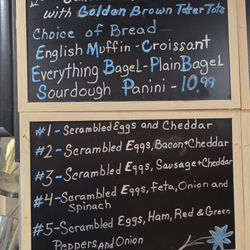 with Golden Brown Tater Tots
Choice of Bread—
English Muffin - Croissant
Everything Bagel - Plain Bagel
Sourdough Panini - 10.99
#1 - Scrambled Eggs and Cheddar
#2 - Scrambled Eggs, Bacon + Cheddar
#3 - Scrambled Eggs, Sausage + Cheddar
#4 - Scrambled Eggs, Feta, Onion and
Spinach
#5 - Scrambled Eggs, Ham, Red & Green
Peppers and Onion